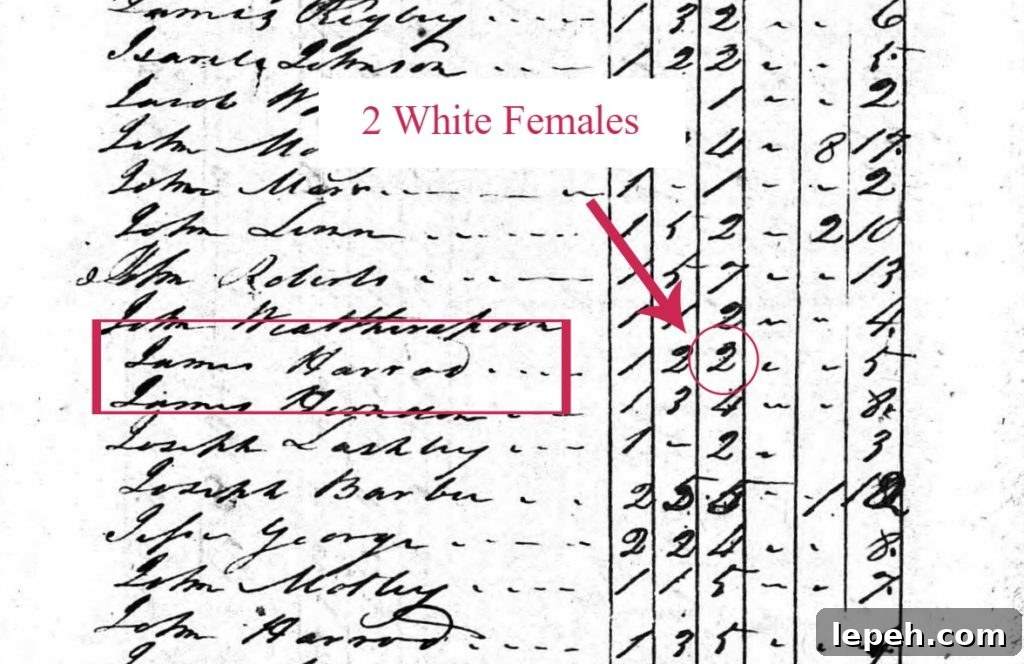 James Rigby - - - - 1 3 2 - - 6
Isarela Johnson - - - - 1 2 2 - - 5
Jacob 1 - - 2
2 White Females
John 4 - 8 17
John Marr - - - - - - 1 - 1 - - 2
John Linn - - - - - 1 5 2 - 2 10
John Roberts - - - - - 1 5 7 - - 13
John Weatherspoon 1 1 2 - - 4
James Harrod - - - - 1 2 2 - - 5
James Herndon - - 1 3 4 - - 8
Joseph Lashley - - - 1 - 2 - 3
Joseph Barber - - 2 5 5 - 1
George - - - - - 2 2 4 - - 8
John Motley - - - - 1 1 5 - - 7
John Harrod - - - - 1 3 5 -
lepeh.com